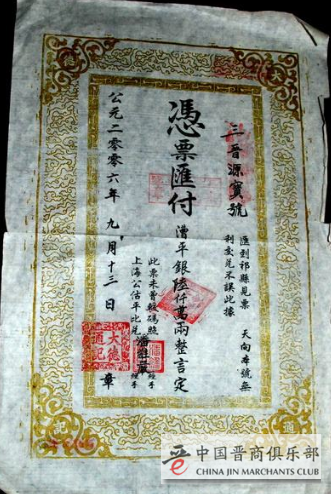 三晋源寳號
匯到祁縣見票
天向本號無
利交兑不誤此據
憑票匯付
漕平銀陸仟萬兩整言定
此票未曾較碼照
上海公估平比兑
經手
公元二零零六年 九月十三日
章
大德通記
中国晋商俱乐部
CHINA JIN MARCHANTS CLUB